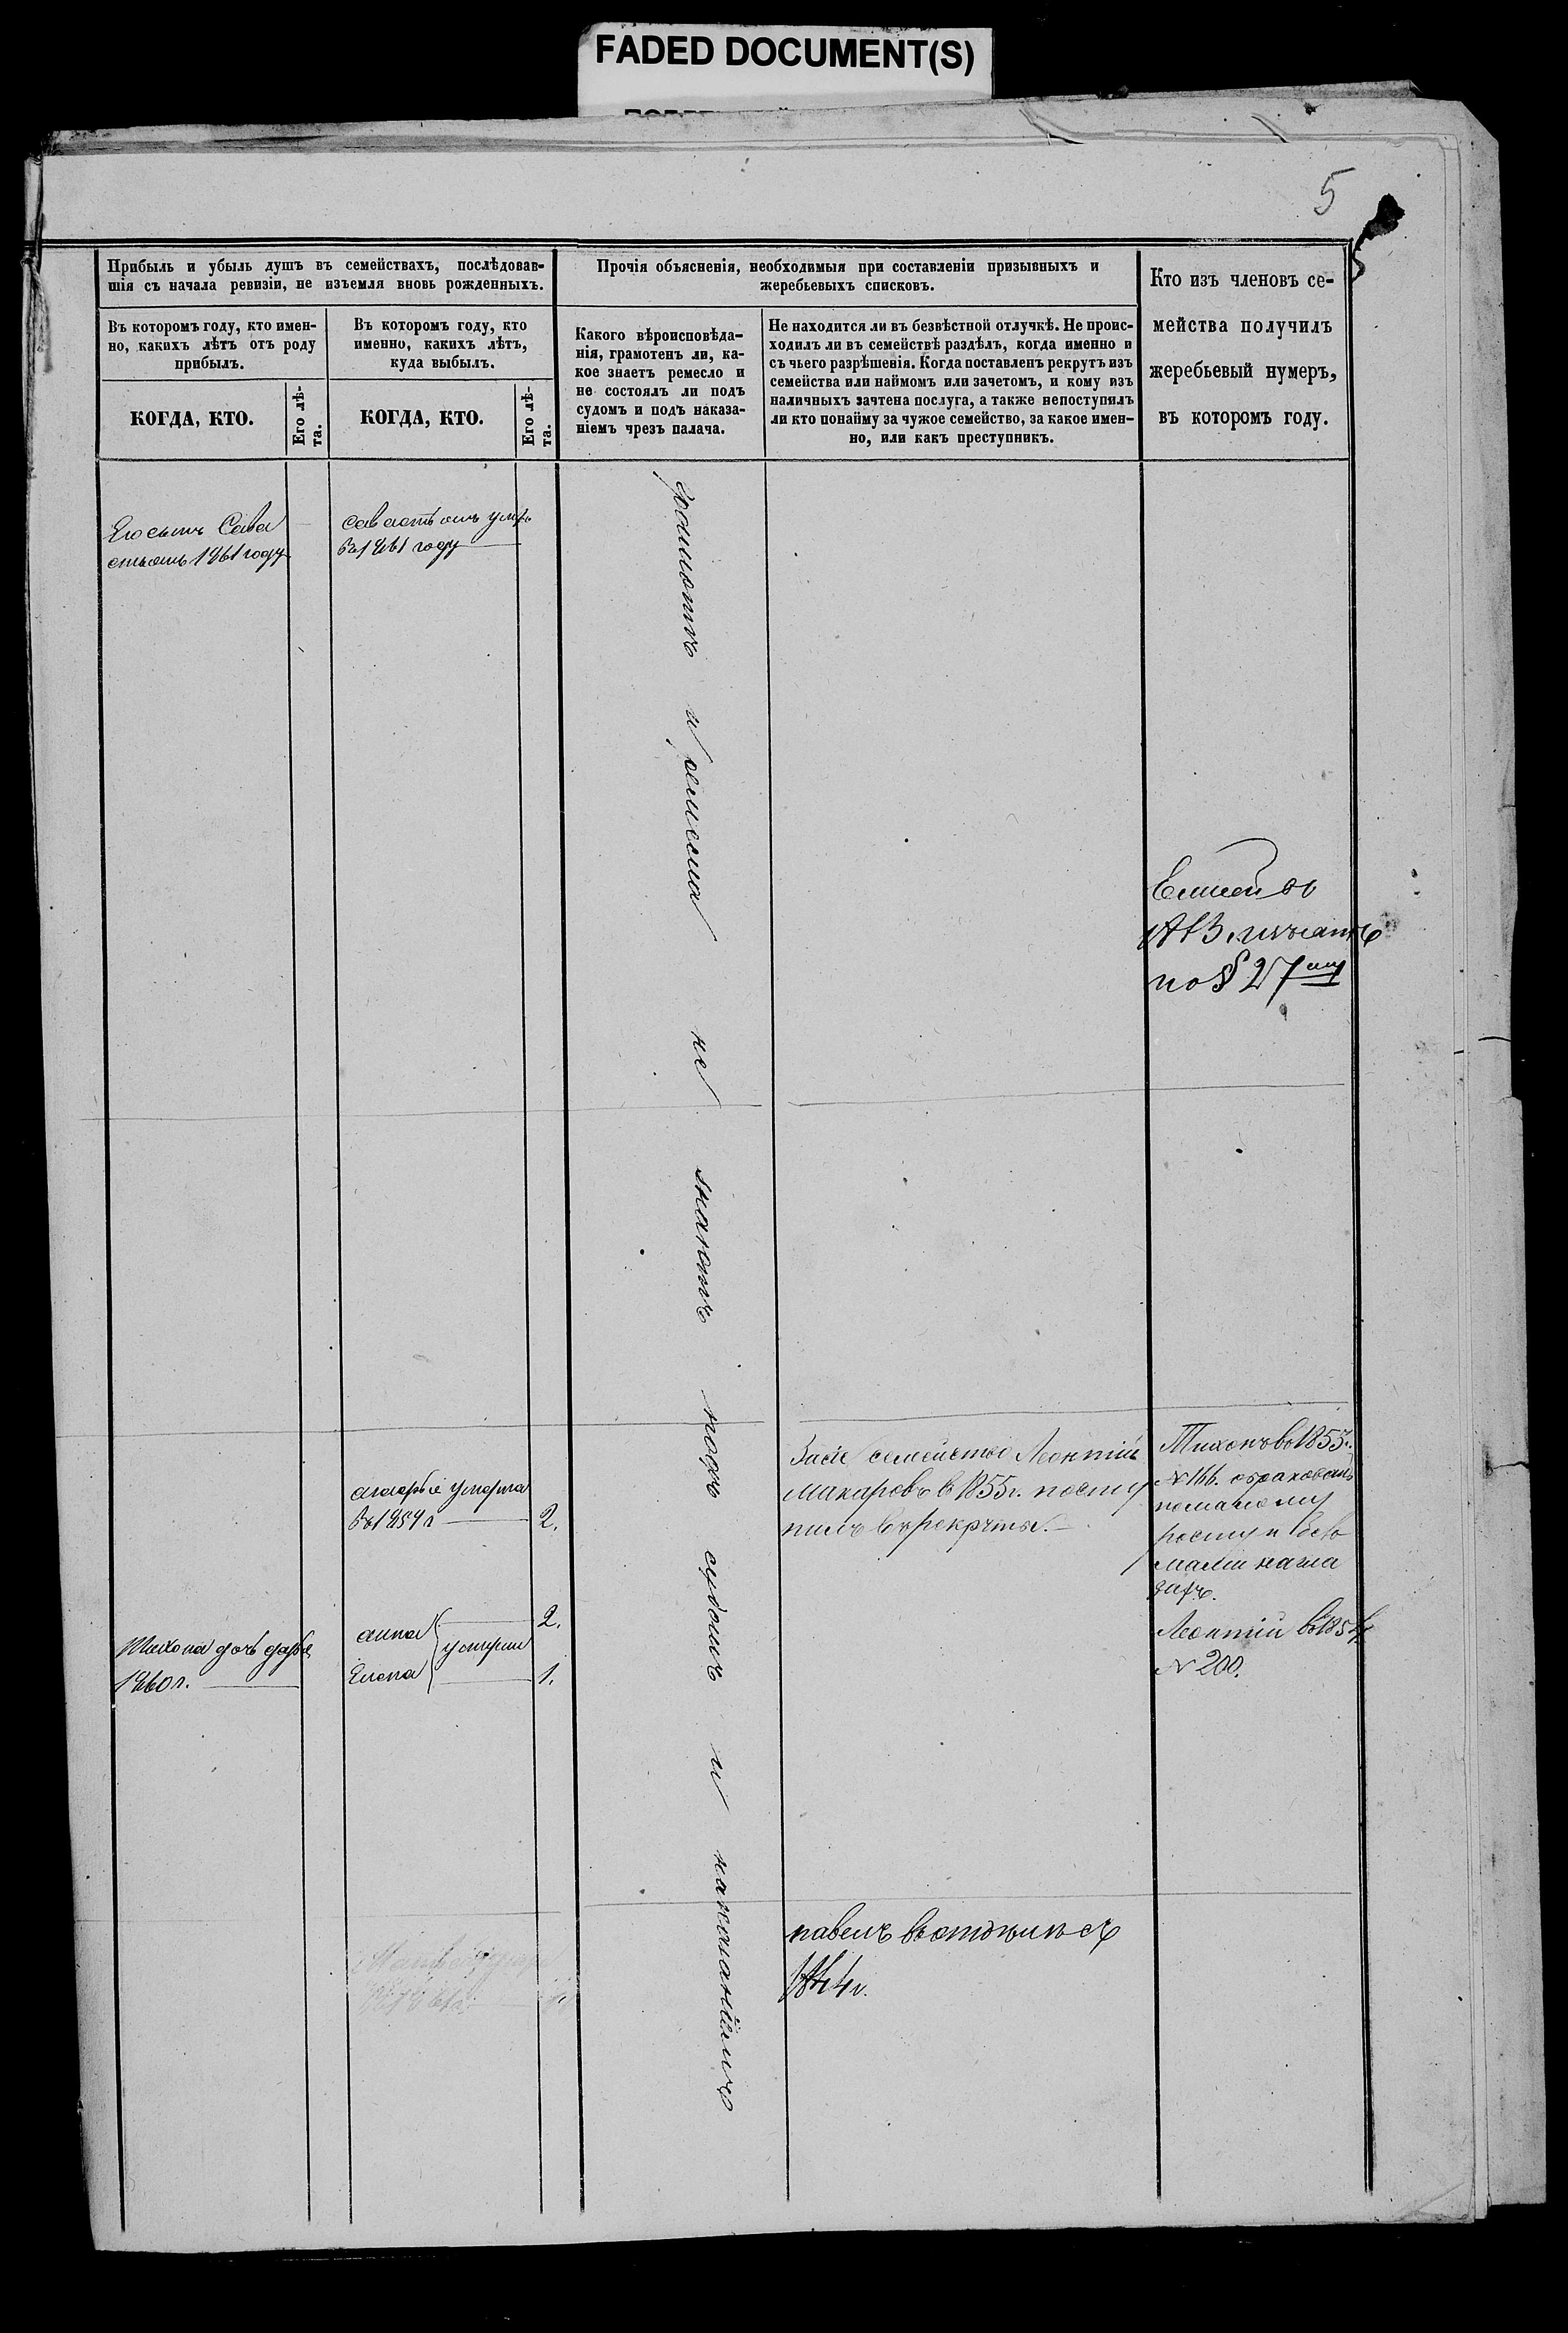 FADED DOCUMENT(S)
5
Прибыль и убыль душъ въ семействахъ, послѣдовав-
шія съ начала ревизіи, не изъемля вновь рожденныхъ.
Въ которомъ году, кто имен-
но, какихъ лѣтъ отъ роду
прибылъ.
КОГДА, КТО.
Его лѣ-
та.
Въ которомъ году, кто
именно, какихъ лѣтъ,
куда выбылъ.
КОГДА, КТО.
Его лѣ-
та.
Прочія объясненія, необходимыя при составленіи призывныхъ и
жеребьевыхъ списковъ.
Какого вѣроисповѣда-
нія, грамотенъ ли, ка-
кое знаетъ ремесло и
не состоялъ ли подъ
судомъ и подъ наказа-
ніемъ чрезъ палача.
Не находится ли въ безвѣстной отлучкѣ. Не проис-
ходилъ ли въ семействѣ раздѣлъ, когда именно и
съ чьего разрѣшенія. Когда поставленъ рекрутъ изъ
семейства или наймомъ или зачетомъ, и кому изъ
наличныхъ зачтена послуга, а также непоступилъ
ли кто понайму за чужое семейство, за какое имен-
но, или какъ преступникъ.
Кто изъ членовъ се-
мейства получилъ
жеребьевый нумеръ,
въ которомъ году.
Его сынъ Сева
стьянъ 1861 году
севастьянъ умръ
въ 1861 году
и ремесла не знаютъ подъ судомъ и наказаніемъ
Елисей
по § 27
умерла
2.
анна
умерли
2.
Елена
1.
Тихона дочь дарья
1860 г.
За сіе семейство Леонтій
Макаровъ в 1855 г. посту
пилъ въ рекруты.
Тихонъ в 1855 г.
№ 166. обракованъ
по малому
росту
Леонтій в 1854
№ 200.
павелъ въ